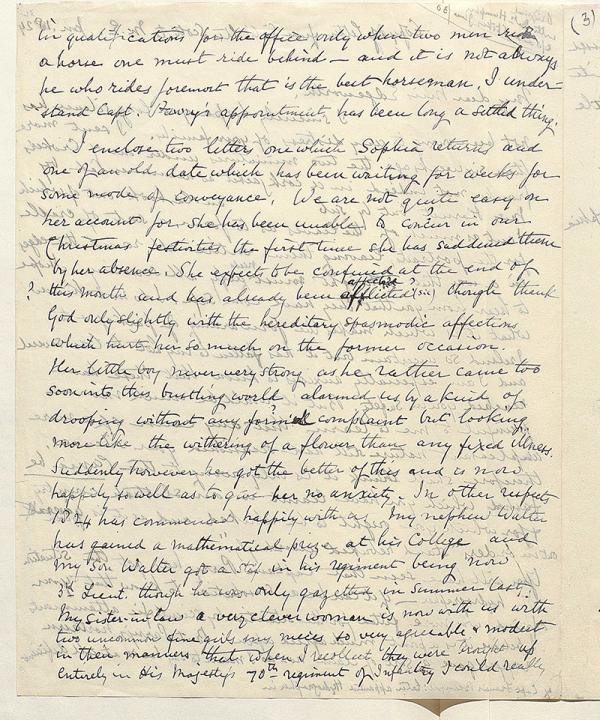 (3)
in qualifications for the office only when two men ride
a horse one must ride behind – and it is not always
he who rides foremost that is the best horseman. I under-
stand Capt. appointment has been long a settled thing.
I enclose two letters one which Sophia returns and
one of an old date which has been waiting for weeks for
some mode of conveyance. We are not quite easy on
her account for she has been unable to concur in our
Christmas festivities the first time she has saddened them
by her absence. She expects to be confined at the end of
affected ?
? this month and has already been afflicted (sic) though thank
God only slightly with the hereditary spasmodic affections
which hurt her so much on the former occasion.
Her little boy never very strong as he rather came too
soon into this bustling world alarmed us by a kind of
drooping without any formed complaint but looking
more like the withering of a flower than any fixed illness.
Suddenly however he got the better of this and is now
happily so well as to give her no anxiety. In other respects
1824 has commenced happily with us. My nephew Walter
has gained a mathematical prize at his College and
my Son Walter got a step in his regiment being now
3rd Lieut. though he was only gazetted in Summer last.
My sister-in-law a very clever woman is now with us with
two uncommon fine girls my nieces so very agreeable & modest
in their manners that when I recollect they were brought up
entirely in His Majesty's 70th regiment of Infantry I could really